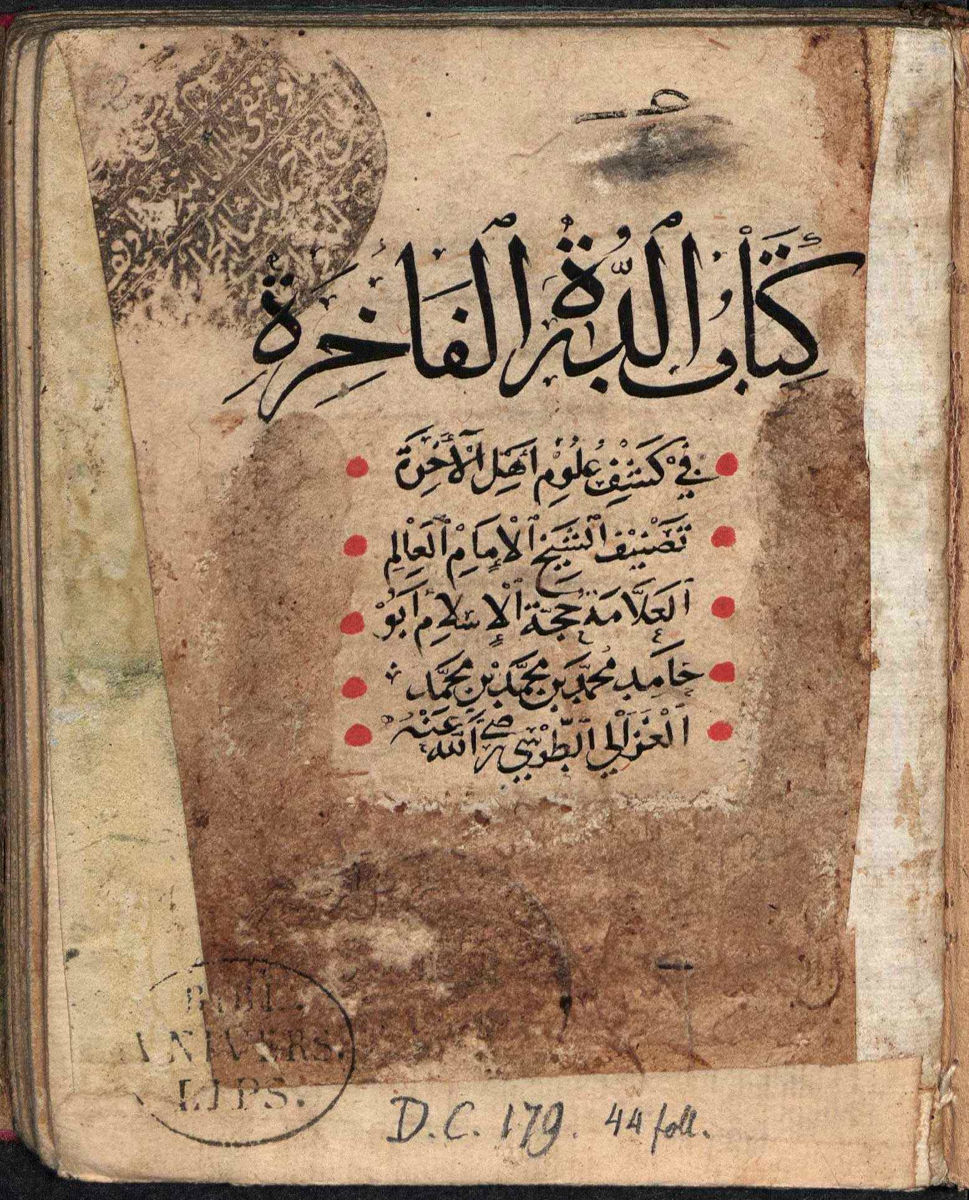 كتاب الدرة الفاخرة
في كشف علوم اهل الاخرة
تصنيف الشيخ الامام العالم
العلامة حجة الاسلام ابو
حامد محمد بن محمد بن محمد
الغزالي الطوسي رضي الله عنه
BIBL.
VNIVERS.
LIPS.
D.C. 179. 44 foll.